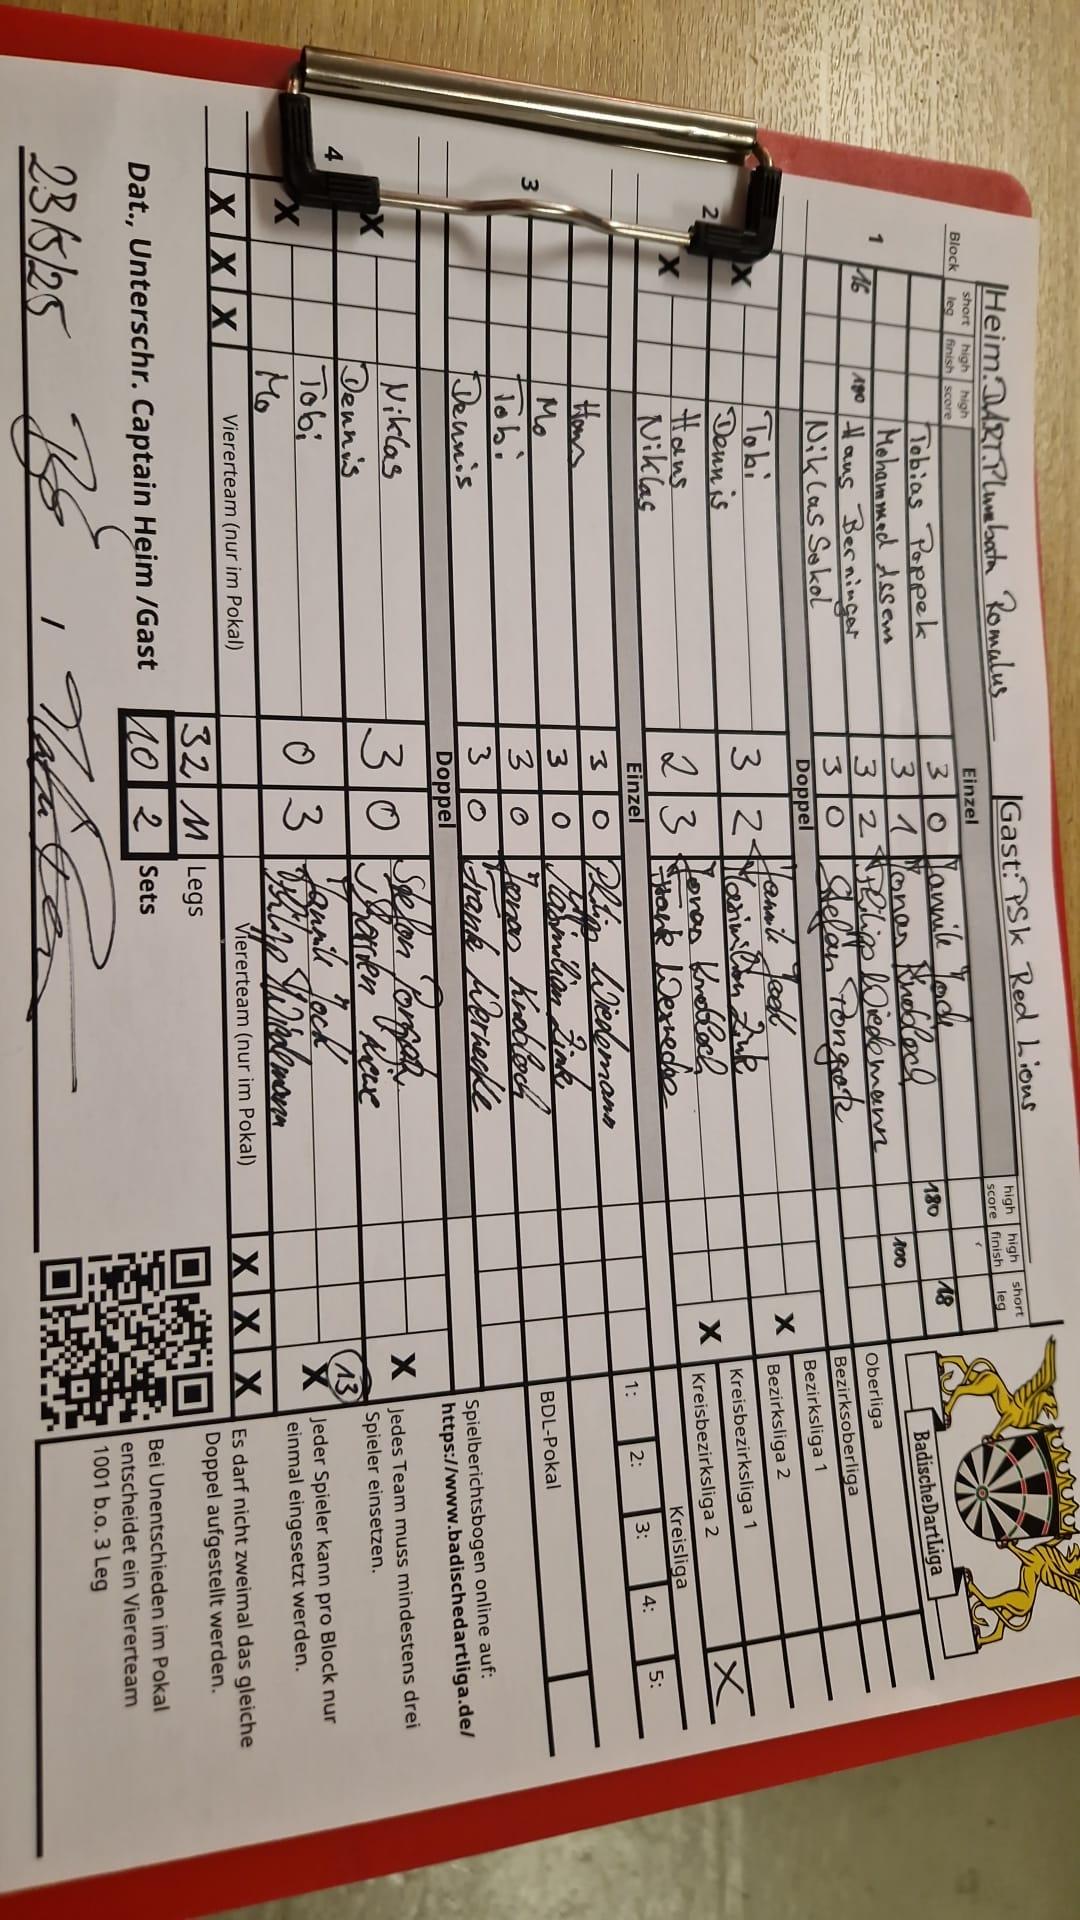 Heim: DART.Plumbata Romulus Gast: PSK Red Lions
Block short leg high finish high score Einzel high score high finish short leg
Tobias Poppek 3 0 Yannik Jock 180 18
1 Mohammed Assem 3 1 Jonas Knobloch 100
16 180 Hans Berninger 3 2 Philipp Wiedemann
Niklas Sokol 3 0 Stefan Pongratz
Doppel
X Tobi 3 2 Yannik Jock X
2 Dennis Maximilian Zink
X Hans 2 3 Jonas Knobloch X
Niklas Frank Wernecke
Einzel
Hans 3 0 Philipp Wiedemann
3 Mo 3 0 Maximilian Zink
Tobi 3 0 Jonas Knobloch
Dennis 3 0 Frank Wernecke
Doppel
X Niklas 3 0 Stefan Pongratz X
4 Dennis
X Tobi 0 3 Yannik Jock X
Mo Philipp Wiedemann
13
X X X Vierterteam (nur im Pokal) Viererteam (nur im Pokal) X X X
32 11 Legs
Dat., Unterschr. Captain Heim /Gast 10 2 Sets
23/5/25 /
BadischeDartLiga
Oberliga
Bezirksoberliga
Bezirksliga 1
Bezirksliga 2
Kreisbezirksliga 1 X
Kreisbezirksliga 2
Kreisliga
1: 2: 3: 4: 5:
BDL-Pokal
Spielberichtsbogen online auf:
https://www.badischedartliga.de/
Jedes Team muss mindestens drei
Spieler einsetzen.
Jeder Spieler kann pro Block nur
einmal eingesetzt werden.
Es darf nicht zweimal das gleiche
Doppel aufgestellt werden.
Bei Unentschieden im Pokal
entscheidet ein Viererteam
1001 b.o. 3 Leg